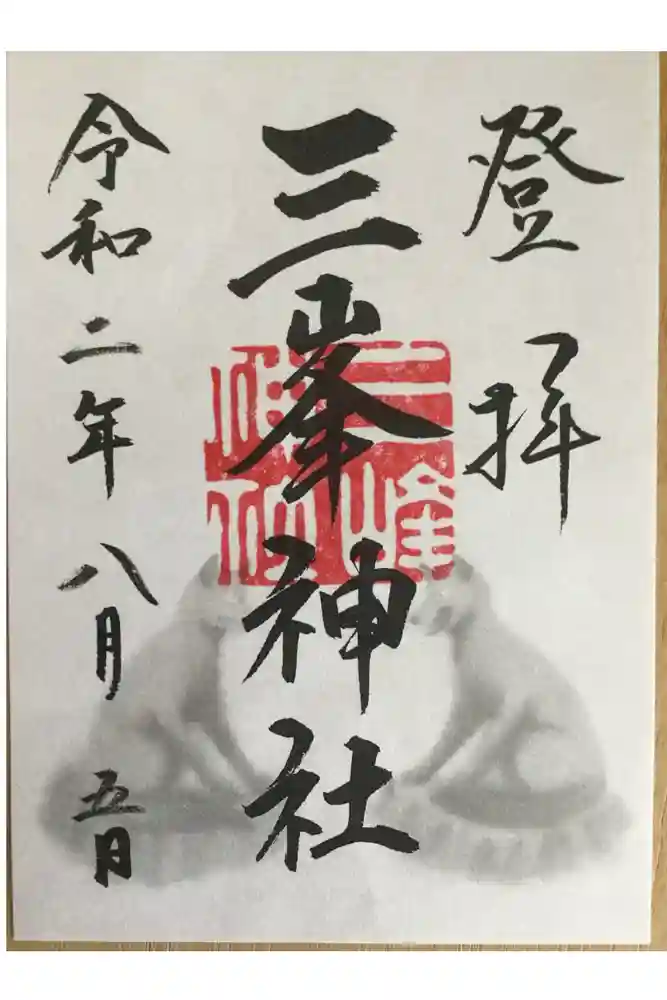 登拝
三峯神社
三峰神社
令和二年八月五日